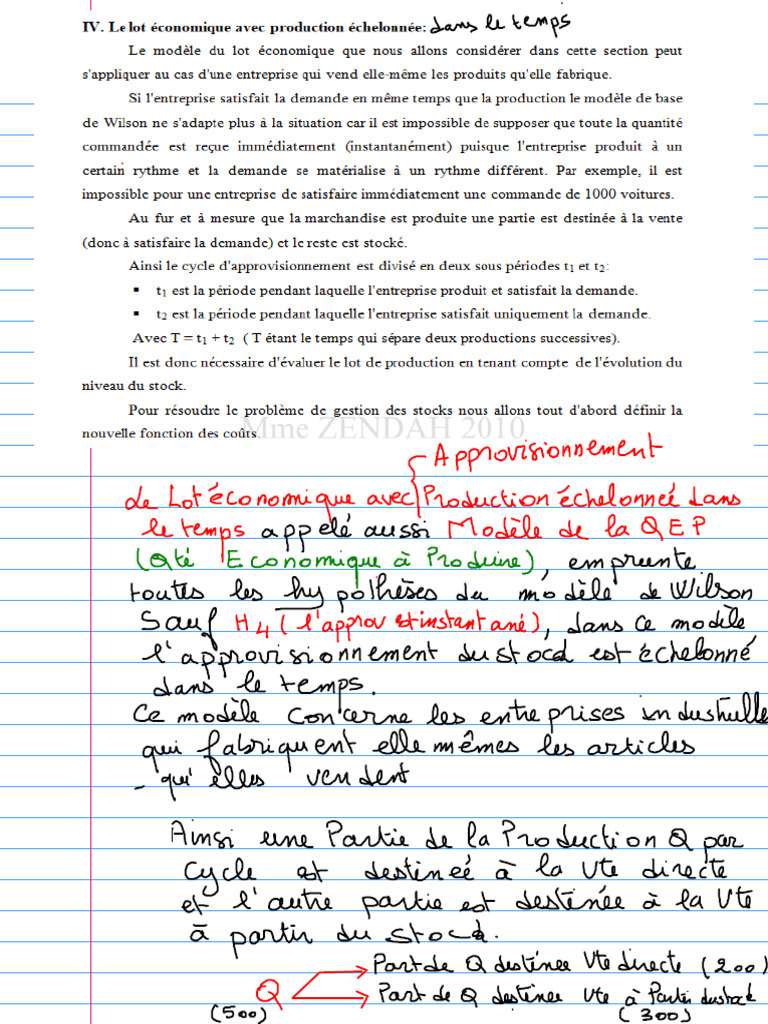 IV. Le lot économique avec production échelonnée: dans le temps
Le modèle du lot économique que nous allons considérer dans cette section peut
s'appliquer au cas d'une entreprise qui vend elle-même les produits qu'elle fabrique.
Si l'entreprise satisfait la demande en même temps que la production le modèle de base
de Wilson ne s'adapte plus à la situation car il est impossible de supposer que toute la quantité
commandée est reçue immédiatement (instantanément) puisque l'entreprise produit à un
certain rythme et la demande se matérialise à un rythme différent. Par exemple, il est
impossible pour une entreprise de satisfaire immédiatement une commande de 1000 voitures.
Au fur et à mesure que la marchandise est produite une partie est destinée à la vente
(donc à satisfaire la demande) et le reste est stocké.
Ainsi le cycle d'approvisionnement est divisé en deux sous périodes t1 et t2:
▪ t1 est la période pendant laquelle l'entreprise produit et satisfait la demande.
▪ t2 est la période pendant laquelle l'entreprise satisfait uniquement la demande.
Avec T = t1 + t2 ( T étant le temps qui sépare deux productions successives).
Il est donc nécessaire d'évaluer le lot de production en tenant compte de l'évolution du
niveau du stock.
Pour résoudre le problème de gestion des stocks nous allons tout d'abord définir la
nouvelle fonction des coûts.
Mme ZENDAH 2010
Approvisionnement
Le Lot économique avec Production échelonneé dans
le temps appelé aussi Modèle de la QEP
(Qté Economique à Produire), emprunte
toutes les hypothèses du modèle de Wilson
Sauf H4 (l'approv est instantané), dans ce modèle
l'approvisionnement du stock est échelonné
dans le temps.
Ce modèle concerne les entreprises industrielles
qui fabriquent elle mêmes les articles
- qu'elles vendent
Ainsi une Partie de la Production Q par
Cycle est destineé à la Vte directe
et l'autre partie est destinée à la Vte
à partir du stock.
Part de Q destinée Vte directe (200)
Q
Part de Q destinée Vte à Partir du stock
(500) (300)